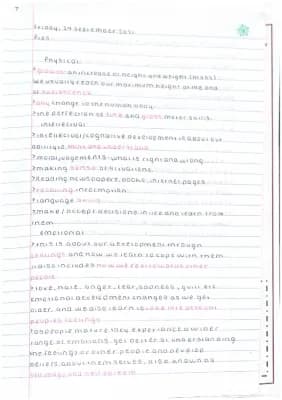 7
Friday, 24 September 2021
PIES
Physical:
*growth: an increase in height and weight (mass)
we usually reach our maximum height at the end
of adolescence
*any change in the human body
*the perfection of fine and gross motor skills.
intellectual
*intellectual/cognitive development is about our
ability to think and understand
*moral judgements: what is right and wrong
*making sense of situations.
*reading newspapers, books, internet pages
*recalling information.
*language skills
*make / accept decisions in life and learn from
them
emotional
*this is about our development through
feelings and how we learn to cope with them
it also includes how we feel towards other
people
*love, hate, anger, fear, sadness, guilt etc
emotional development changes as we get
older, and we also learn to take into account
peoples feelings
*as people mature they experience a wider
range of emotions, get better at understanding
the feelings of other people and develop
beliefs about themselves, also known as
self image and self esteem